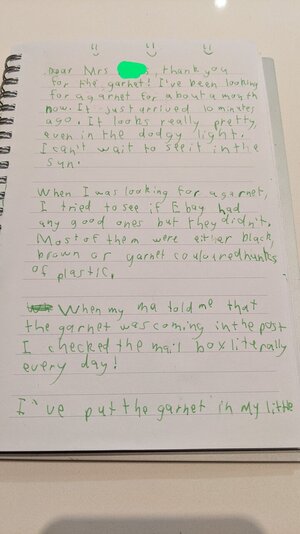 Dear Mrs s, thank you
for the garnet! I've been looking
for a garnet for about a month
now. It just arrived 10 minutes
ago. It looks really pretty,
even in the dodgy light.
I can't wait to see it in the
sun.
When I was looking for a garnet,
I tried to see if Ebay had
any good ones but they didn't.
Most of them were either black,
brown or garnet couloured hunks
of plastic.
When my ma told me that
the garnet was coming in the post
I checked the mail box literally
every day!
I've put the garnet in my little